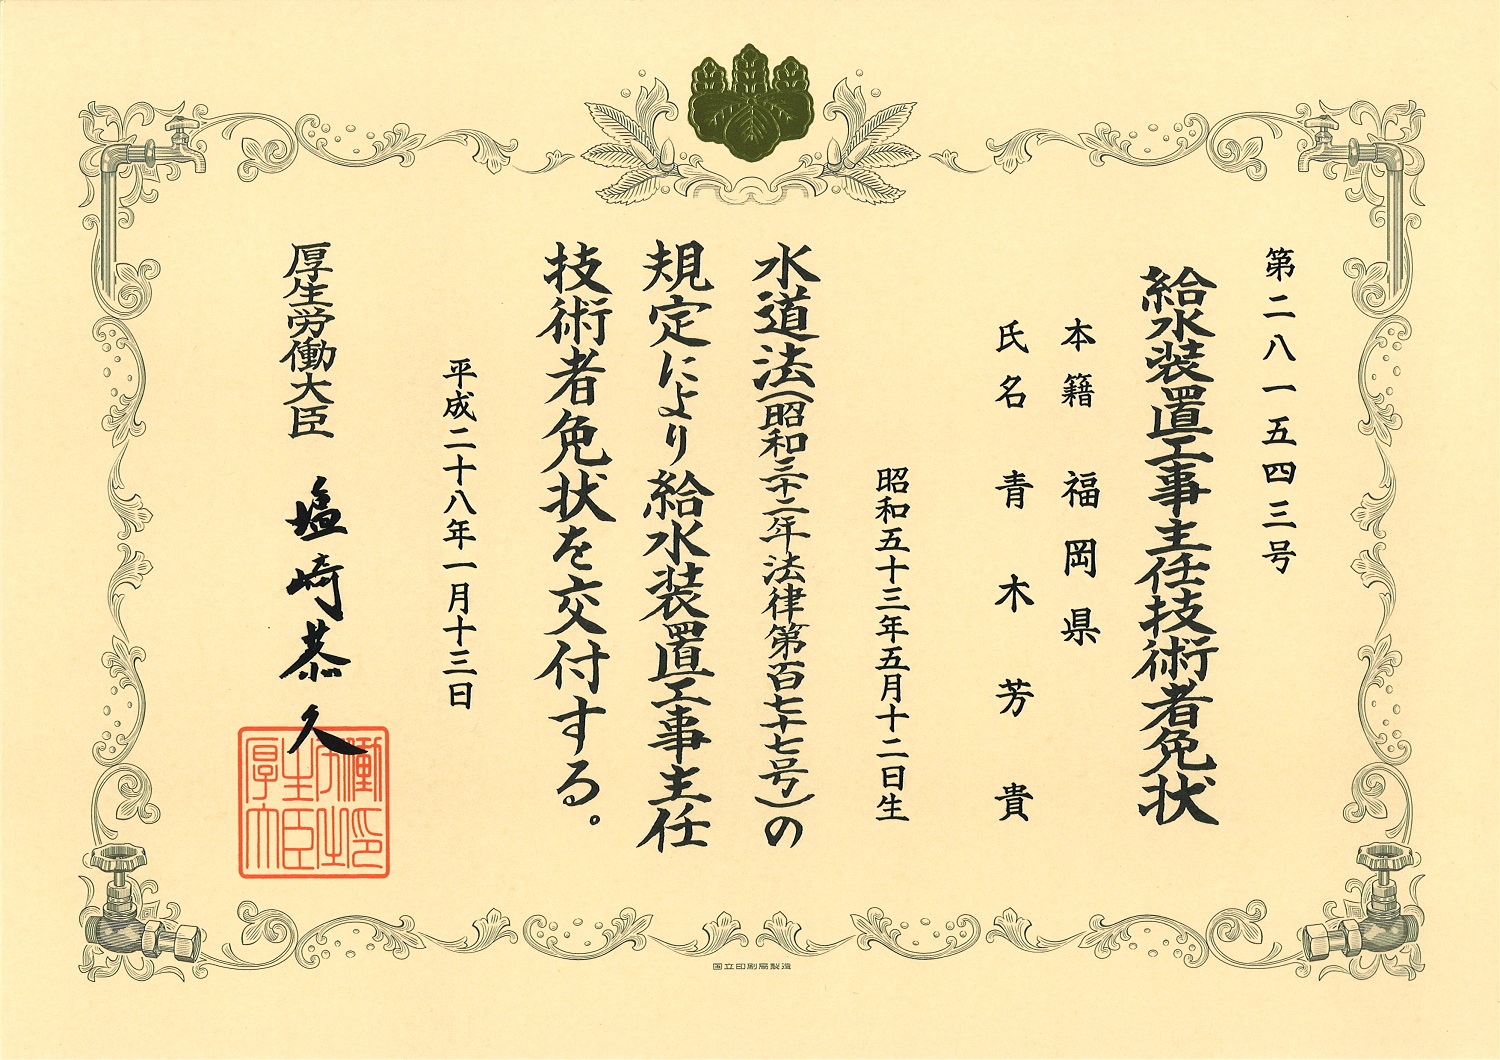 第二八一五四三号
給水装置工事主任技術者免状
本籍 福岡県
氏名 青木芳貴
昭和五十三年五月十二日生
水道法(昭和三十二年法律第百七十七号)の
規定により給水装置工事主任
技術者免状を交付する。
平成二十八年一月十三日
厚生労働大臣 塩崎恭久
厚生労働
大臣之印
国立印刷局製造